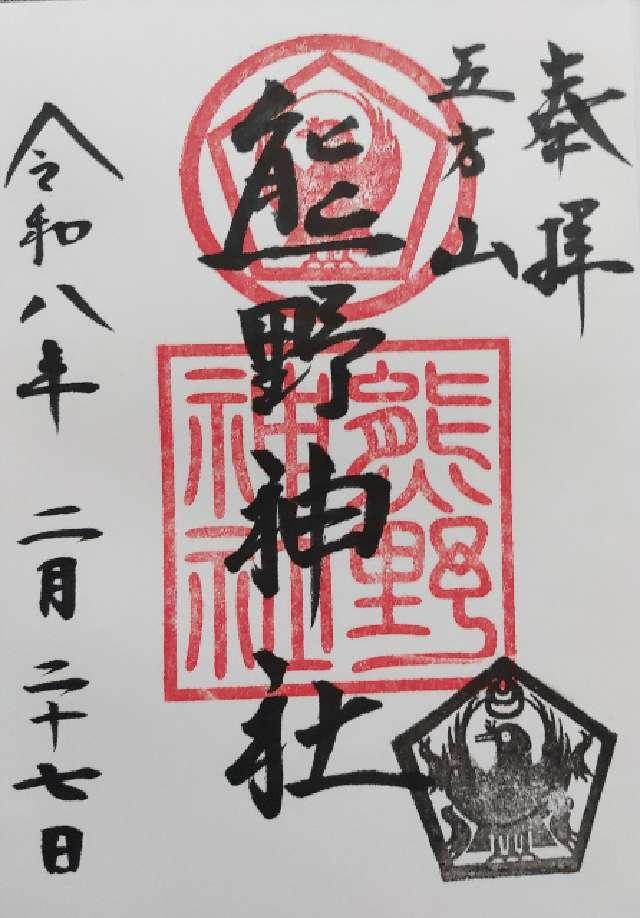 奉拝
五方山
熊野神社
熊野
神社
令和八年 二月 二十七日